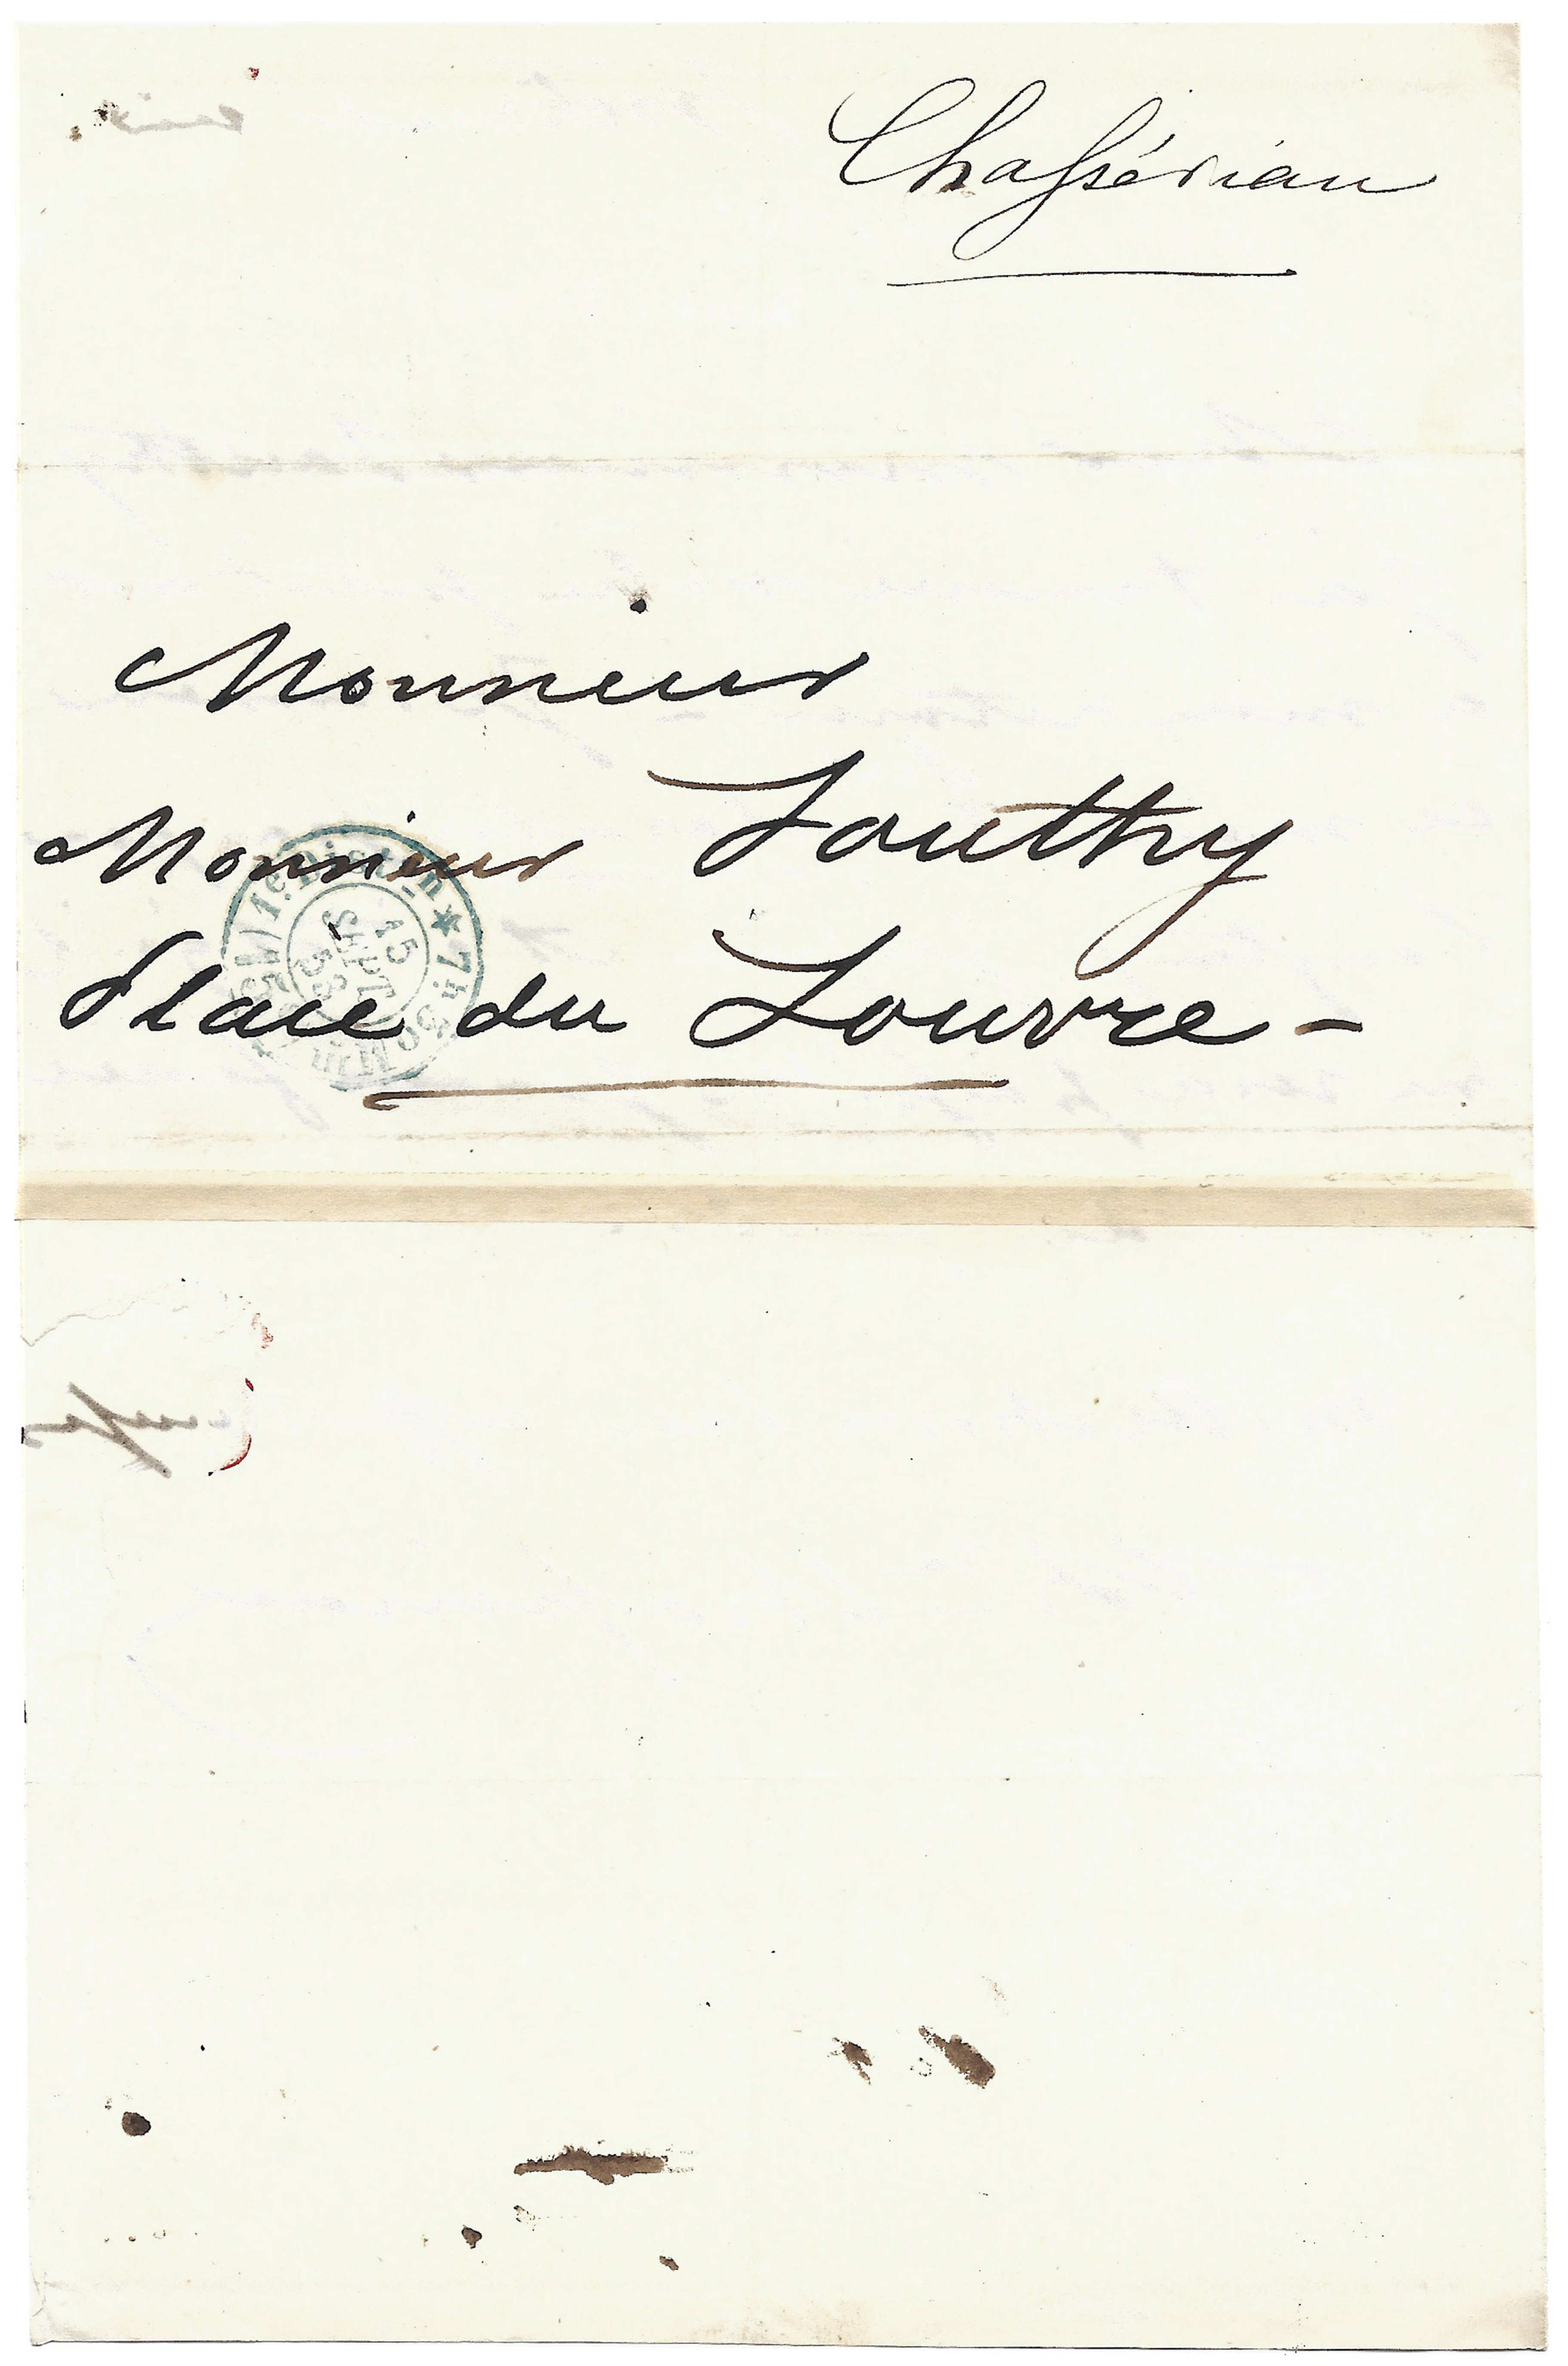 Chassériau
Monsieur
Monsieur Southy
Place du Louvre –
1e. Distion
15
SEPT
53